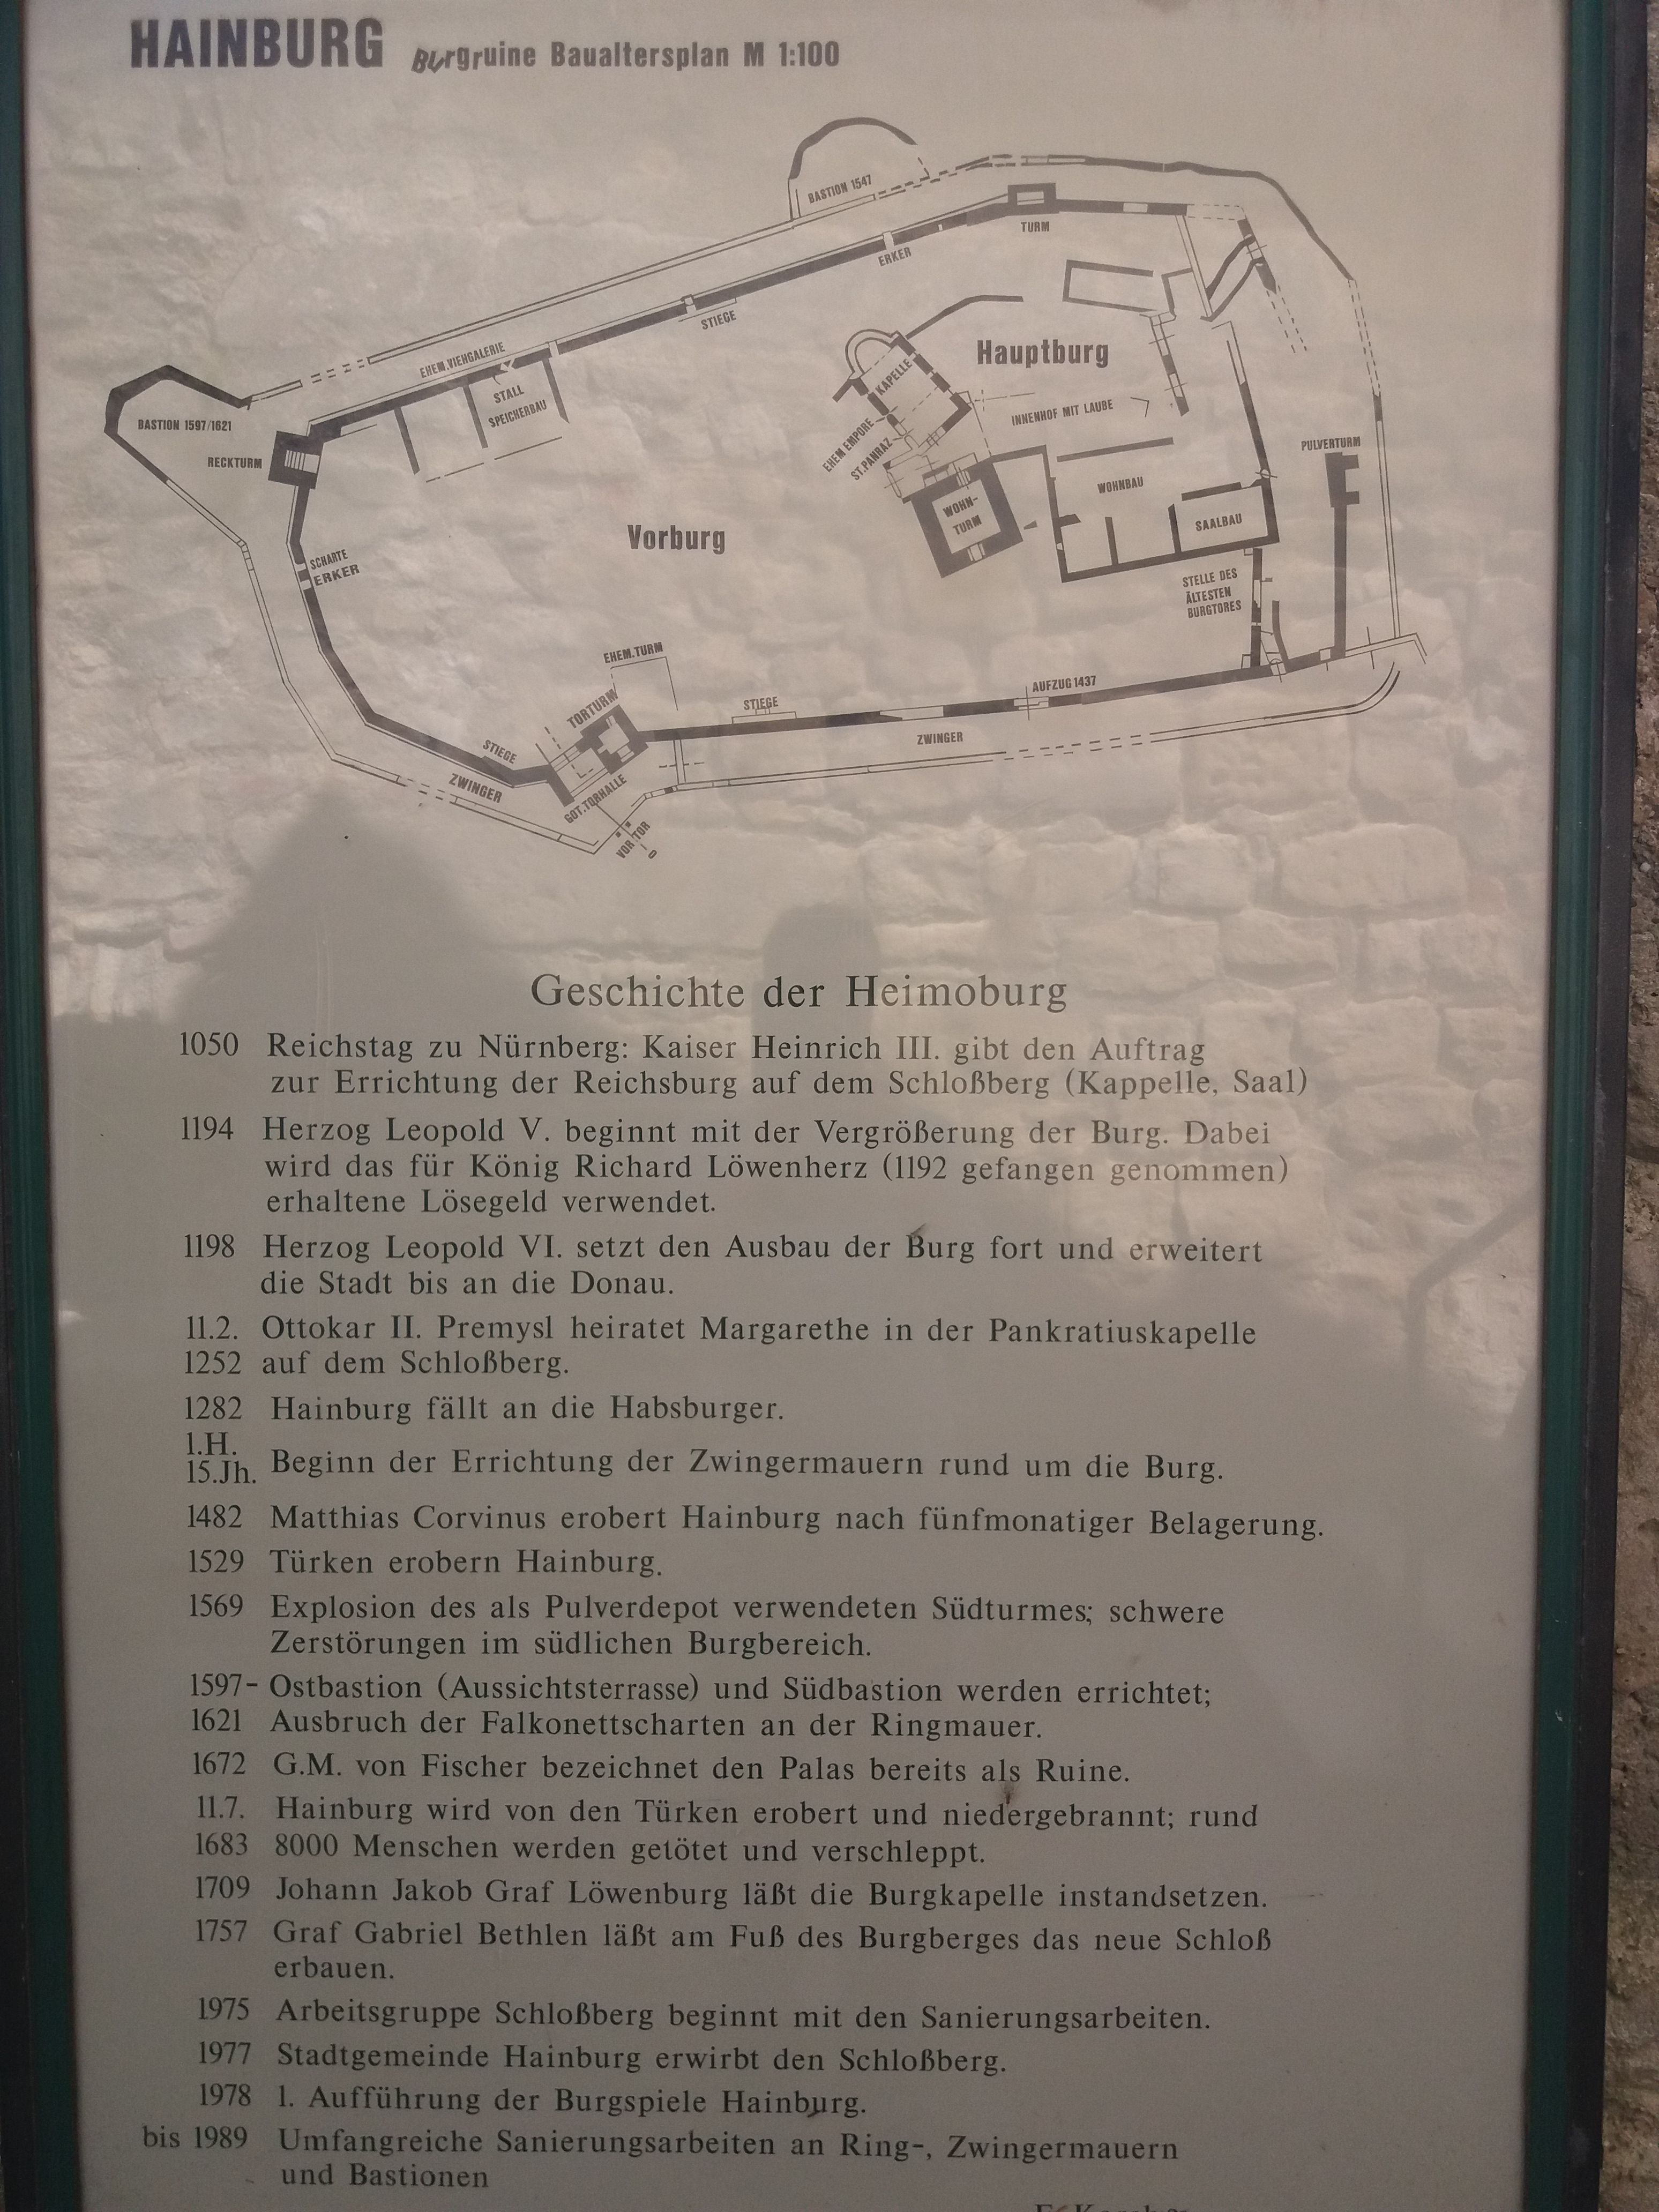 HAINBURG Burgruine Baualtersplan M 1:100
BASTION 1547
TURM
ERKER
STIEGE
Hauptburg
EHEM.VIEHGALERIE
STALL
SPEICHERBAU
KAPELLE
INNENHOF MIT LAUBE
BASTION 1597/1621
RECKTURM
EHEM EMPORE
ST.PANRAZ
PULVERTURM
WOHNBAU
WOHN-
TURM
SAALBAU
Vorburg
SCHARTE
ERKER
STELLE DES
ÄLTESTEN
BURGTORES
EHEM.TURM
TORTURM
STIEGE
AUFZUG 1437
STIEGE
ZWINGER
ZWINGER
GOT.TORHALLE
VOR TOR
Geschichte der Heimoburg
1050 Reichstag zu Nürnberg: Kaiser Heinrich III. gibt den Auftrag
zur Errichtung der Reichsburg auf dem Schloßberg (Kappelle, Saal)
1194 Herzog Leopold V. beginnt mit der Vergrößerung der Burg. Dabei
wird das für König Richard Löwenherz (1192 gefangen genommen)
erhaltene Lösegeld verwendet.
1198 Herzog Leopold VI. setzt den Ausbau der Burg fort und erweitert
die Stadt bis an die Donau.
11.2. Ottokar II. Premysl heiratet Margarethe in der Pankratiuskapelle
1252 auf dem Schloßberg.
1282 Hainburg fällt an die Habsburger.
1.H.
15.Jh. Beginn der Errichtung der Zwingermauern rund um die Burg.
1482 Matthias Corvinus erobert Hainburg nach fünfmonatiger Belagerung.
1529 Türken erobern Hainburg.
1569 Explosion des als Pulverdepot verwendeten Südturmes; schwere
Zerstörungen im südlichen Burgbereich.
1597- Ostbastion (Aussichtsterrasse) und Südbastion werden errichtet;
1621 Ausbruch der Falkonettscharten an der Ringmauer.
1672 G.M. von Fischer bezeichnet den Palas bereits als Ruine.
11.7. Hainburg wird von den Türken erobert und niedergebrannt; rund
1683 8000 Menschen werden getötet und verschleppt.
1709 Johann Jakob Graf Löwenburg läßt die Burgkapelle instandsetzen.
1757 Graf Gabriel Bethlen läßt am Fuß des Burgberges das neue Schloß
erbauen.
1975 Arbeitsgruppe Schloßberg beginnt mit den Sanierungsarbeiten.
1977 Stadtgemeinde Hainburg erwirbt den Schloßberg.
1978 1. Aufführung der Burgspiele Hainburg.
bis 1989 Umfangreiche Sanierungsarbeiten an Ring-, Zwingermauern
und Bastionen